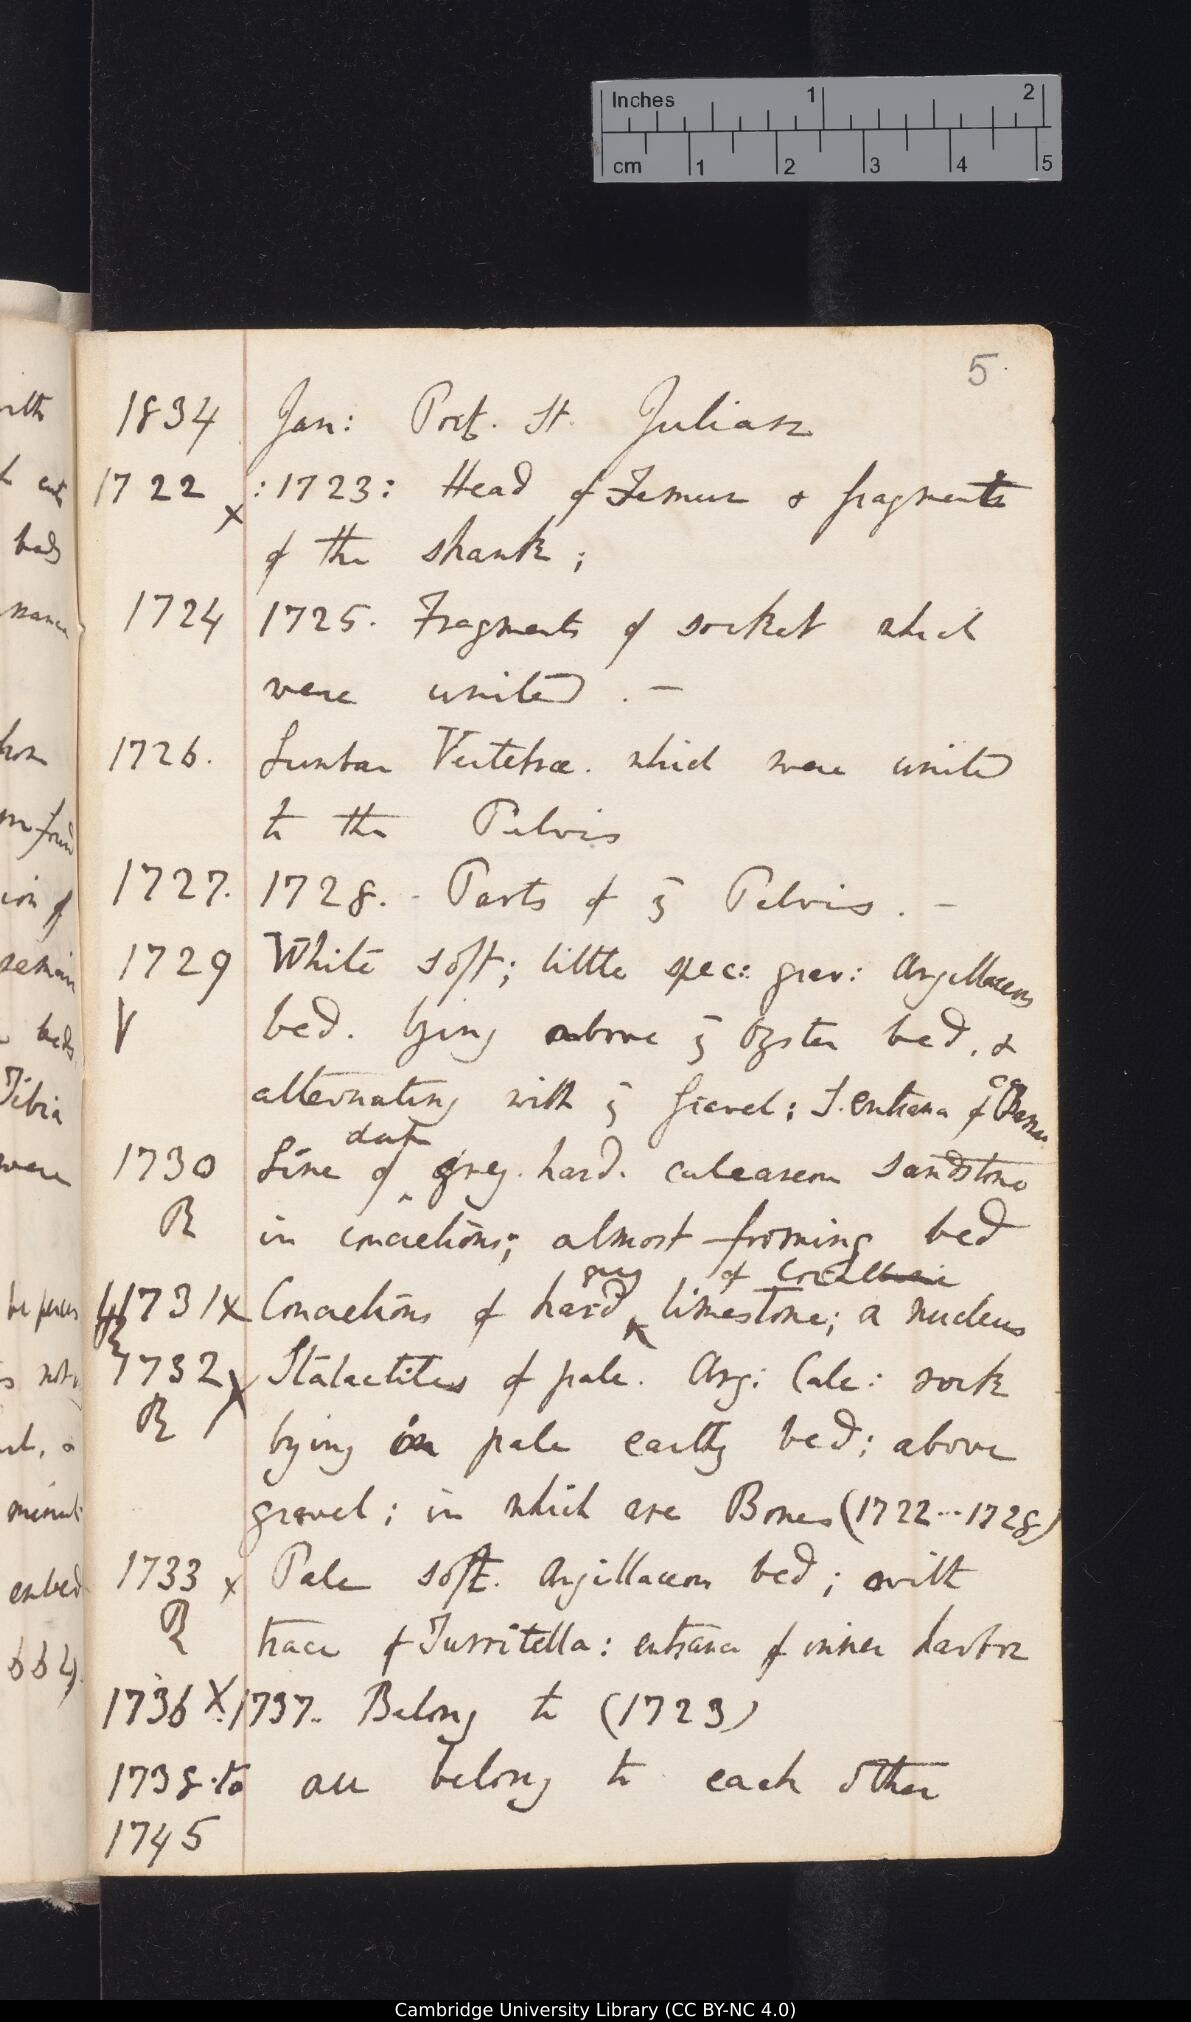 Inches 1 2
cm 1 2 3 4 5
5.
1834 Jan: Port. St. Julian
1722 x :1723: Head of Femur & fragments
of the shank;
1724 1725. Fragments of socket which
were united. —
1726. Lumbar Vertebræ. which were united
to the Pelvis
1727. 1728. - Parts of ye Pelvis. —
1729 White soft; little spec: grav: Argillaceous
V bed. lying above ye Oyster bed, &
alternating with ye Gravel; S. entrance of
dark
1730 Line of ^ grey. hard. calcareous sandstone
R in concretions; almost forming bed
grey of
1731 x Concretions of hard ^ limestone; a nucleus
1732 x Stalactites of pale. Arg: Calc: rock
R lying in pale earthy bed; above
gravel; in which are Bones (1722...1728)
1733 x Pale soft. Argillaceous bed; with
R trace of Turritella: entrance of inner harbor
1736 X. 1737.. Belong to (1723)
1738. to all belong to each other
1745
with
beds
found
ion of
remain
beds
Tibia
were
664).
Cambridge University Library (CC BY-NC 4.0)